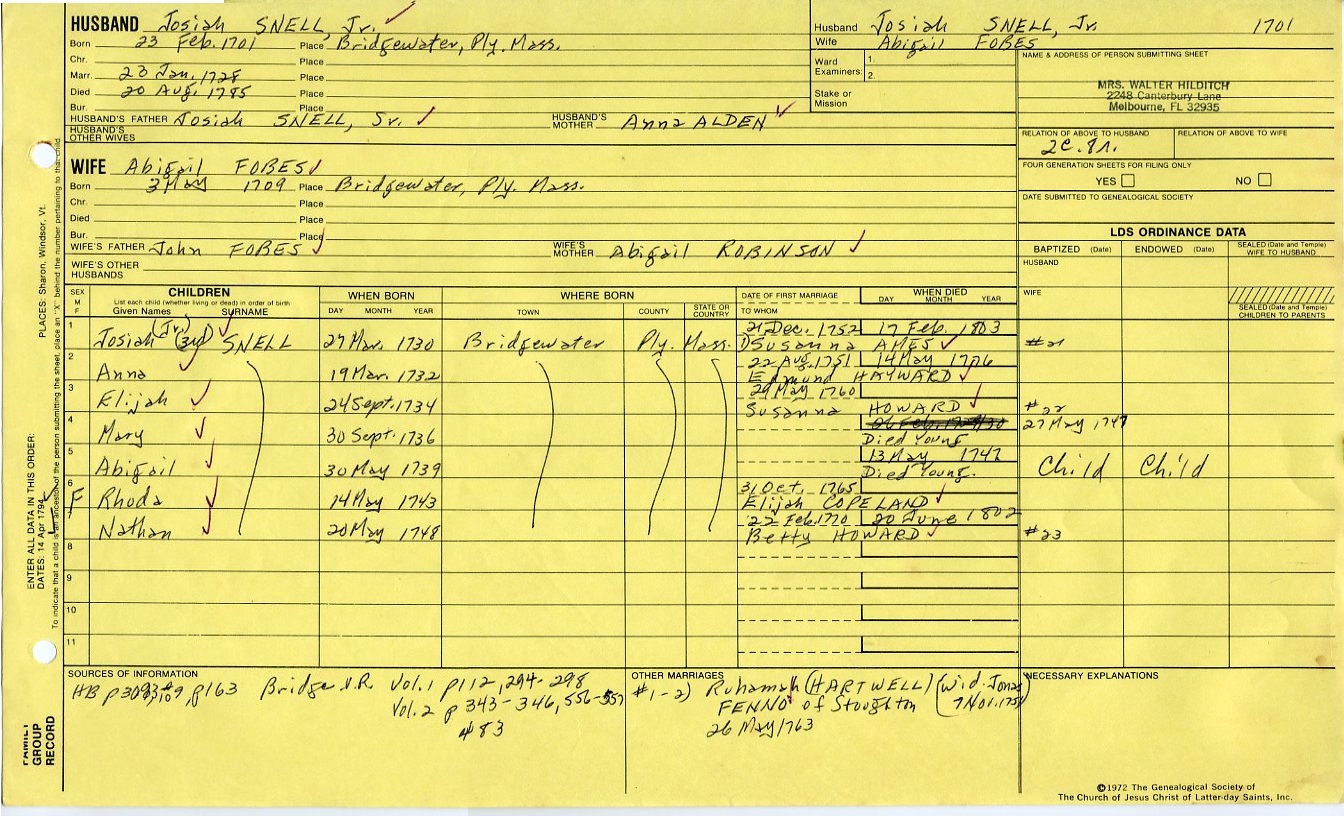 HUSBAND Josiah SNELL, Jr.
Born 23 Feb. 1701 Place Bridgewater, Ply. Mass.
Chr. Place
Marr. 23 Jan. 1728 Place
Died 20 Aug. 1785 Place
Bur. Place
HUSBAND'S FATHER Josiah SNELL, Sr. HUSBAND'S MOTHER Anna ALDEN
HUSBAND'S OTHER WIVES
WIFE Abigail FOBES
Born 3 May 1709 Place Bridgewater, Ply. Mass.
Chr. Place
Died Place
Bur. Place
WIFE'S FATHER John FOBES WIFE'S MOTHER Abigail ROBINSON
WIFE'S OTHER HUSBANDS
Husband Josiah SNELL, Jr. 1701
Wife Abigail FOBES
Ward Examiners: 1.
2.
Stake or Mission
NAME & ADDRESS OF PERSON SUBMITTING SHEET
MRS. WALTER HILDITCH
2248 Canterbury Lane
Melbourne, FL 32935
RELATION OF ABOVE TO HUSBAND RELATION OF ABOVE TO WIFE
FOUR GENERATION SHEETS FOR FILING ONLY
YES NO
DATE SUBMITTED TO GENEALOGICAL SOCIETY
LDS ORDINANCE DATA
BAPTIZED (Date) ENDOWED (Date) SEALED (Date and Temple) WIFE TO HUSBAND
HUSBAND
WIFE
SEALED (Date and Temple) CHILDREN TO PARENTS
SEX M F
CHILDREN
List each child (whether living or dead) in order of birth
Given Names SURNAME
WHEN BORN
DAY MONTH YEAR
WHERE BORN
TOWN COUNTY STATE OR COUNTRY
DATE OF FIRST MARRIAGE
TO WHOM
WHEN DIED
DAY MONTH YEAR
1 Josiah (Jr.) (3rd) SNELL 27 Mar. 1730 Bridgewater Ply. Mass. 21 Dec. 1752 17 Feb. 1803
1) Susanna AMES #21
2 Anna 19 Mar. 1732 22 Aug. 1751 14 May 1776
Edmund HAYWARD
3 Elijah 24 Sept. 1734 29 May 1760
Susanna HOWARD #22
4 Mary 30 Sept. 1736 27 May 1747
Died Young
5 Abigail 30 May 1739 13 May 1747
Died Young. Child Child
6 F Rhoda 14 May 1743 31 Oct. 1765
Elijah COPELAND
7 Nathan 20 May 1748 22 Feb. 1770 20 June 1802
Betty HOWARD #23
8
9
10
11
SOURCES OF INFORMATION
p163 Bridge V.R. Vol. 1 p112, 294-298
Vol. 2 p 343-346, 556-557
#83
OTHER MARRIAGES
#1-2) Ruhamah (HARTWELL) (wid. Jonas
FENNO of Stoughton 7 Nov. 175
26 May 1763
NECESSARY EXPLANATIONS
©1972 The Genealogical Society of
The Church of Jesus Christ of Latter-day Saints, Inc.
ENTER ALL DATA IN THIS ORDER:
DATES: 14 Apr 1794 PLACES: Sharon, Windsor, Vt.
To indicate that a child is an ancestor of the person submitting the sheet, place an "X" behind the number pertaining to that child.
FAMILY GROUP RECORD